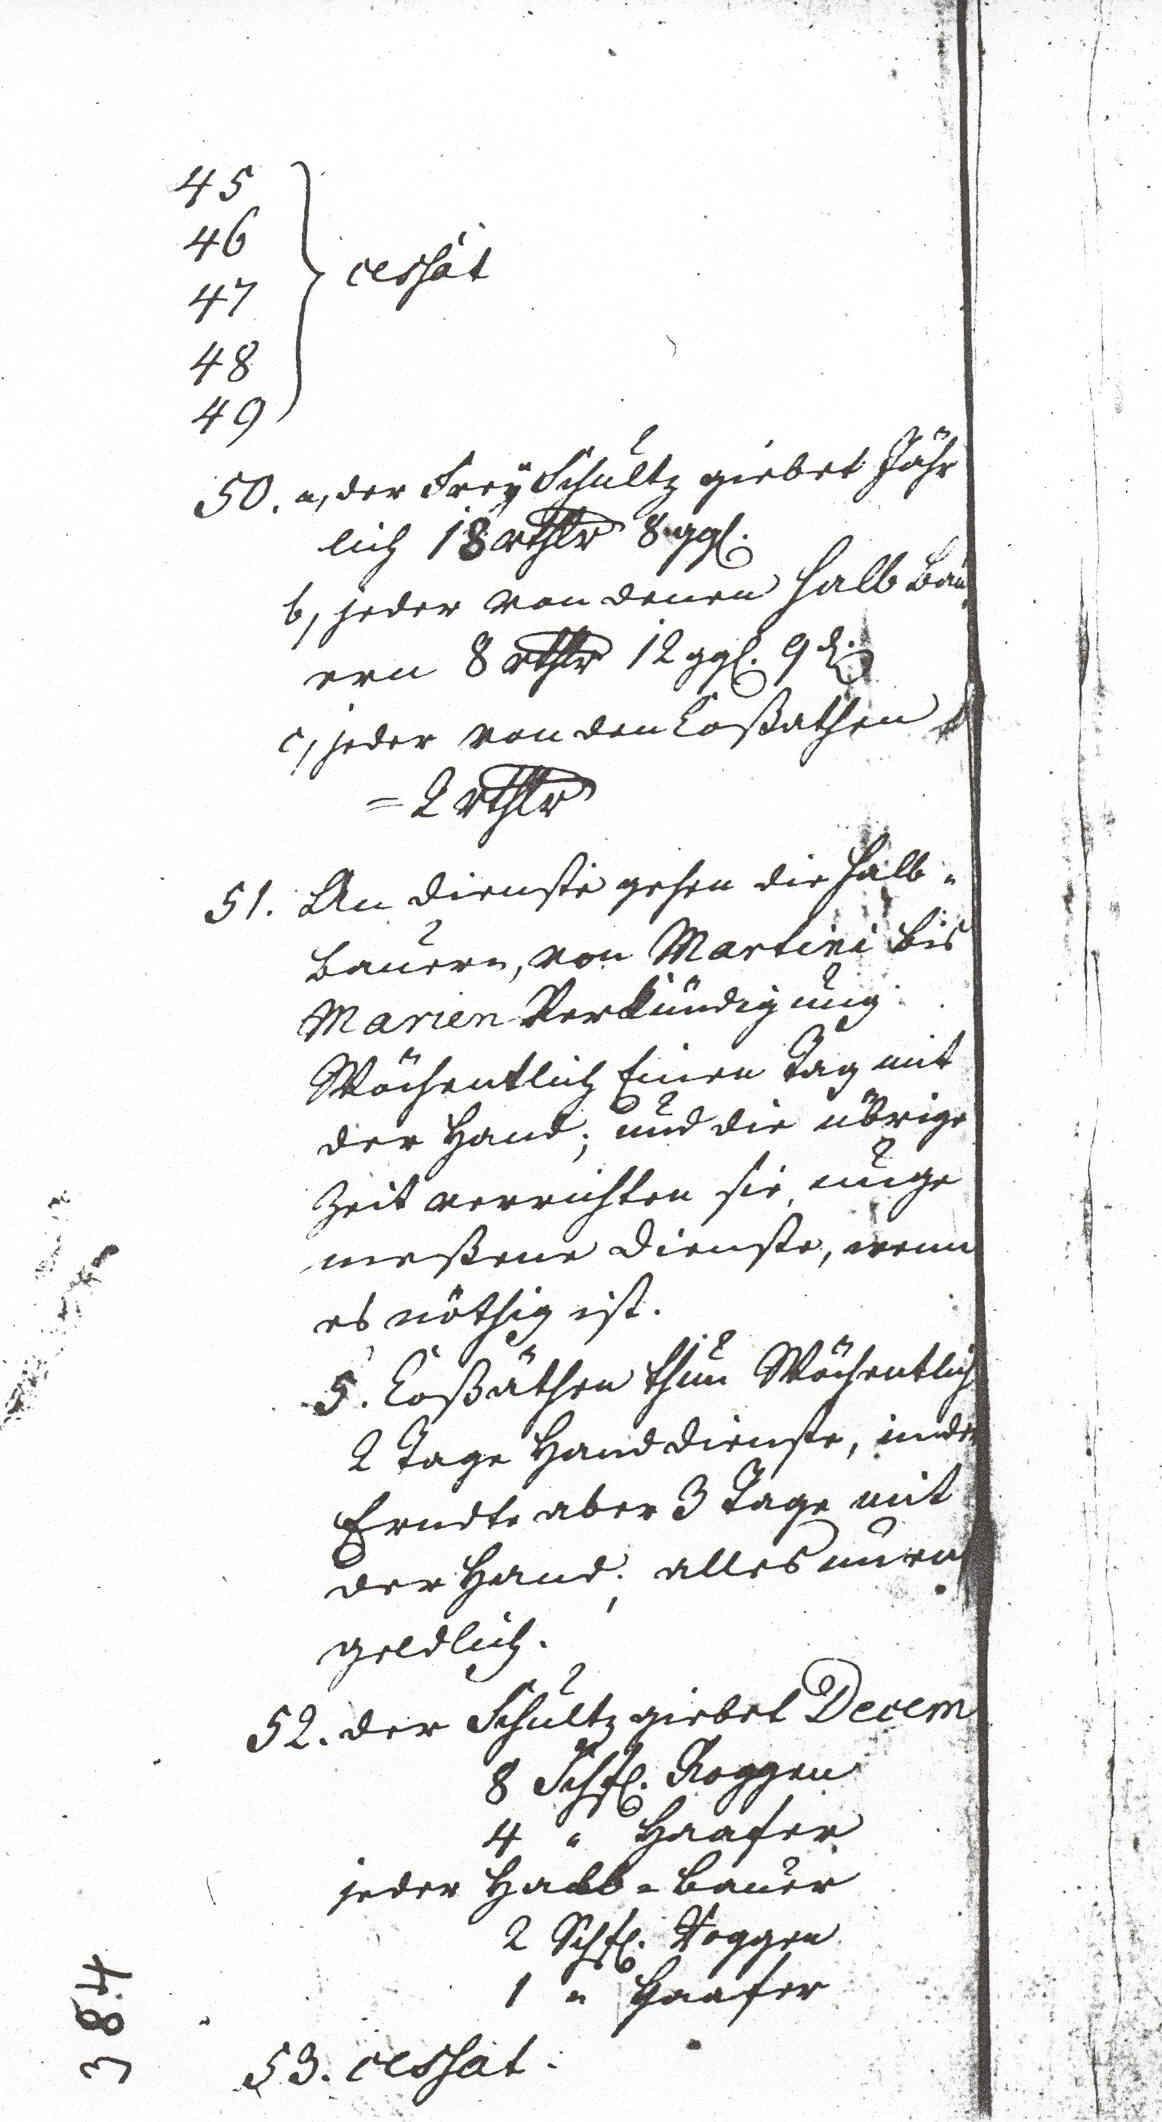 45
46
47 } cessat
48
49
50. a, der Frey Schultz giebet Jähr
lich 18 rthlr 8 ggl.
b, jeder von denen Halb Bau
ern 8 rthlr 12 ggl. 9 d.
c, jeder von den Coßathen
= 2 rthlr
51. An dienste gehen die Halb-
bauern, von Martini bis
Marien Verkündigung
Wöchentlich Einen Tag mit
der Hand; und die übrige
Zeit verrichten sie unge
meßene dienste, wenn
es nöthig ist.
5. Coßäthen thun Wöchentlich
2 Tage Hand dienste, in der
Erndte aber 3 Tage mit
der Hand; alles unent
geldlich.
52. der Schultz giebet Decem
8 Schfl. Roggen
4 " Haafer
jeder Halb-bauer
2 Schfl. Roggen
1 " Haafer
53. cessat.
384